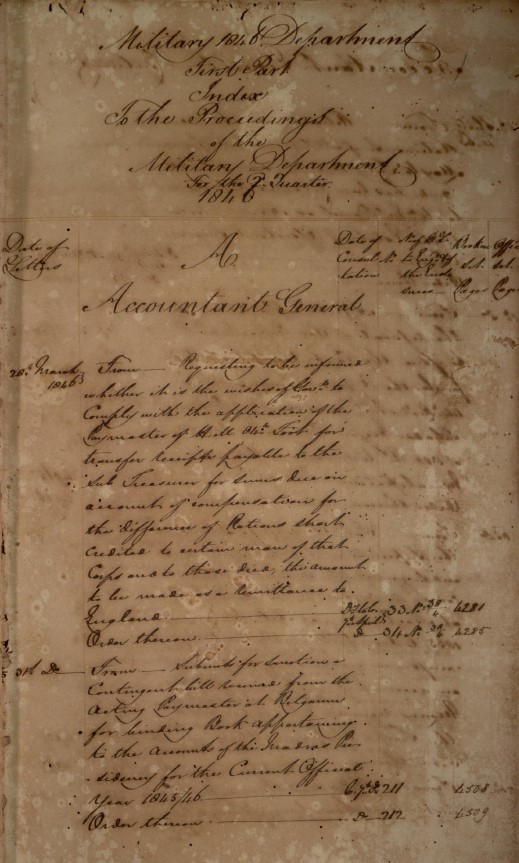 Military 1846 Department
First Part
Index
To the Proceedings
of the
Military Department
For the 2d Quarter
1846
Date of Letters
A
Date of Consultation
Accountant General
28th March 1846
From — Requesting to be informed
whether it is the wishes of Govt. to
Comply with the application of the
Paymaster of H.M. Foot for
transfer receipts payable to the
Sub Treasurer for sums due on
account of compensation for
the difference of Rations short
credited to certain men of that
Corps and to those died, the amount
to be made as a remittance to
England 33 No. 4281
Order thereon 34 No. 4285
31st Do
From — Submits for sanction a
Contingent bill received from the
Acting Paymaster at Belgaum
for binding Book appertaining
to the Accounts of the Madras Pre-
sidency for the Current Official
Year 1845/46 211 4508
Order thereon Do 212 4509